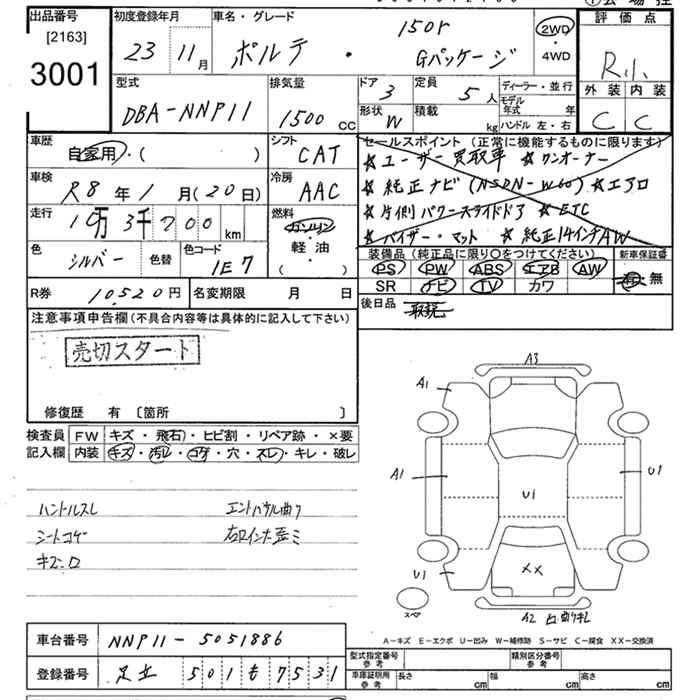 出品番号
[2163]
3001
初度登録年月
23 11月
車名・グレード
150r
ポルテ ・ Gパッケージ
2WD
・
4WD
評価点
R小
外装 内装
C C
型式
DBA-NNP11
排気量
1500 CC
ドア 3
形状 W
定員 5 人
積載 kg
ディーラー・並行
モデル年式 年
ハンドル 左・右
車歴
自家用・( )
シフト
CAT
車検
R8年1月(20日)
冷房
AAC
走行
1 万 3 千 7 0 0 km
燃料
ガソリン
軽・油
( )
色 シルバー 色替
色コード 1E7
R券 10,520円
名変期限 月 日
セールスポイント (正常に機能するものに限ります)
★ユーザー買取車 ★ワンオーナー
★純正ナビ(NSDN-W60) ★エアロ
★片側パワースライドドア ★ETC
★バイザー・マット ★純正14インチAW
装備品 (純正品に限り○をつけてください)
PS PW ABS エアB AW
SR ナビ TV カワ
新車保証書
有・無
後日品 取説
注意事項申告欄 (不具合内容等は具体的に記入して下さい)
売切スタート
修復歴 有 〔箇所 〕
検査員 FW キズ・飛石・ヒビ割・リペア跡・×要
記入欄 内装 キズ・汚レ・コゲ・穴・スレ・キレ・破レ
ハンドルスレ
シートコゲ
キズ・ロ
A3
A1
A1
U1
U1
U1
XX
スペア
A2
A-キズ E-エクボ U-凹み W-補修跡 S-サビ C-腐食 XX-交換済
車台番号 NNP11-5051886
登録番号 足立 501 も 7531
型式指定番号 参考
類別区分番号 参考
車庫証明用 参考 長さ cm 幅 cm 高さ cm